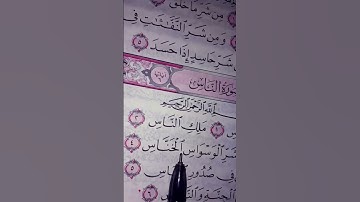 مِن شَرِّ مَا خَلَقَ
وَمِن شَرِّ ٱلنَّفَّٰثَٰتِ فِى
شَرِّ حَاسِدٍ إِذَا حَسَدَ ٥
سُورَةُ ٱلنَّاسِ
بِسْمِ ٱللَّهِ ٱلرَّحْمَٰنِ ٱلرَّحِيمِ
مَلِكِ ٱلنَّاسِ ٢
شَرِّ ٱلْوَسْوَاسِ ٱلْخَنَّاسِ ٤
فِى صُدُورِ ٥
ٱلْجِنَّةِ وَٱلنَّاسِ ٦